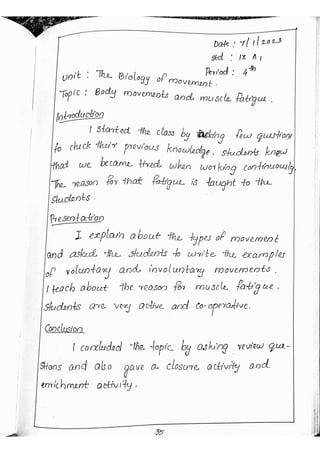 Date : 7/1/2023
std : IX A1
Period : 4th
Unit : The Biology of movement.
Topic : Body movements and muscle fatigue.
Introduction
I started the class by asking few questions
to check their previous knowledge. students knew
that we became tired when working continuously.
The reason for that fatigue is taught to the
students.
Presentation
I explain about the types of movement
and asked the students to write the examples
of voluntary and involuntary movements.
I teach about the reason for muscle fatigue.
Students are very active and co-operative.
Conclusion
I concluded the topic by asking review que-
stions and also gave a closure activity and
enrichment activity.
35